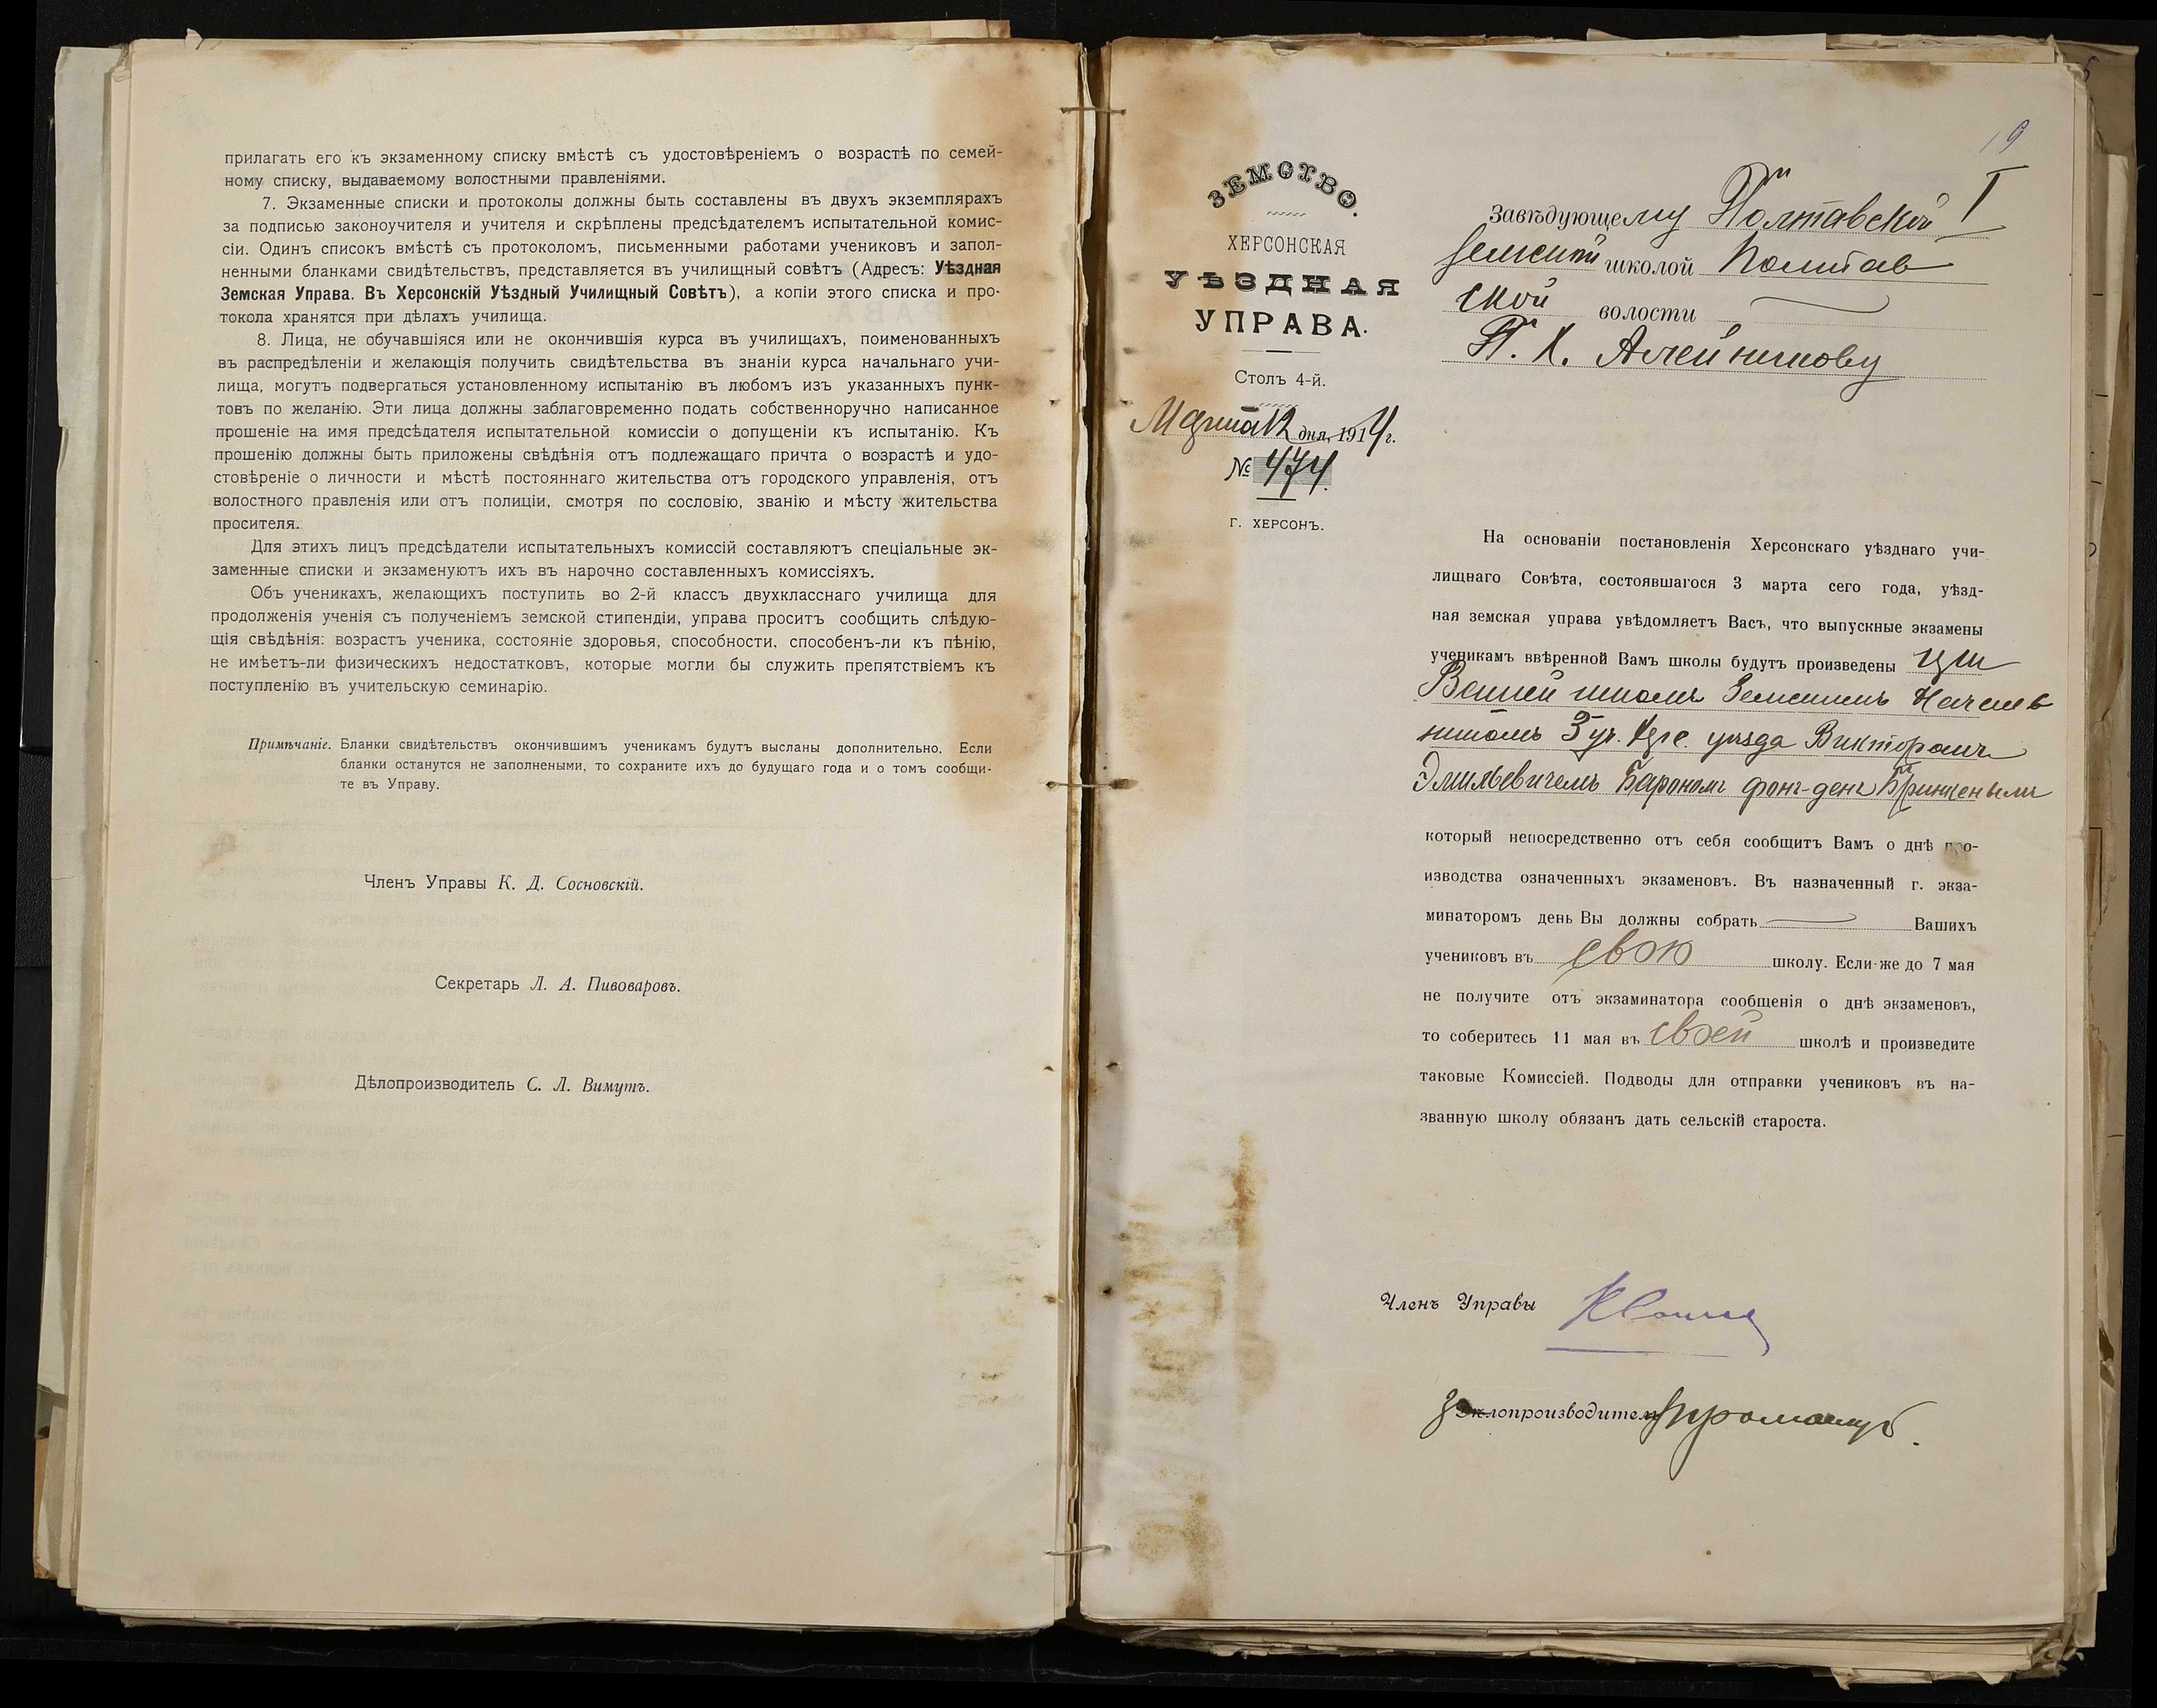 прилагать его къ экзаменному списку вмѣстѣ съ удостовѣреніемъ о возрастѣ по семей-
ному списку, выдаваемому волостными правленіями.
7. Экзаменные списки и протоколы должны быть составлены въ двухъ экземплярахъ
за подписью законоучителя и учителя и скрѣплены предсѣдателемъ испытательной комис-
сіи. Одинъ списокъ вмѣстѣ съ протоколомъ, письменными работами учениковъ и запол-
ненными бланками свидѣтельствъ, представляется въ училищный совѣтъ (Адресъ: Уѣздная
Земская Управа. Въ Херсонскій Уѣздный Училищный Совѣтъ), а копіи этого списка и про-
токола хранятся при дѣлахъ училища.
8. Лица, не обучавшіяся или не окончившія курса въ училищахъ, поименованныхъ
въ распредѣленіи и желающія получить свидѣтельства въ знаніи курса начальнаго учи-
лища, могутъ подвергаться установленному испытанію въ любомъ изъ указанныхъ пунк-
товъ по желанію. Эти лица должны заблаговременно подать собственноручно написанное
прошеніе на имя предсѣдателя испытательной комиссіи о допущеніи къ испытанію. Къ
прошенію должны быть приложены свѣдѣнія отъ подлежащаго причта о возрастѣ и удо-
стовѣреніе о личности и мѣстѣ постояннаго жительства отъ городского управленія, отъ
волостного правленія или отъ полиціи, смотря по сословію, званію и мѣсту жительства
просителя.
Для этихъ лицъ предсѣдатели испытательныхъ комиссій составляютъ спеціальные эк-
заменные списки и экзаменуютъ ихъ въ нарочно составленныхъ комиссіяхъ.
Объ ученикахъ, желающихъ поступить во 2-й классъ двухкласснаго училища для
продолженія ученія съ полученіемъ земской стипендіи, управа проситъ сообщить слѣдую-
щія свѣдѣнія: возрастъ ученика, состояніе здоровья, способности, способенъ-ли къ пѣнію,
не имѣетъ-ли физическихъ недостатковъ, которые могли бы служить препятствіемъ къ
поступленію въ учительскую семинарію.
Примѣчаніе. Бланки свидѣтельствъ окончившимъ ученикамъ будутъ высланы дополнительно. Если
бланки останутся не заполнеными, то сохраните ихъ до будущаго года и о томъ сообщи-
те въ Управу.
Членъ Управы К. Д. Сосновскій.
Секретарь Л. А. Пивоваровъ.
Дѣлопроизводитель С. Л. Вимутъ.
19
ЗЕМСТВО.
ХЕРСОНСКАЯ
УѢЗДНАЯ
УПРАВА.
Столъ 4-й.
Марта 12 дня, 1914 г.
№ 474.
Г. ХЕРСОНЪ.
Завѣдующему Полтавской I
земской школой Полтав
ской волости
П. К. Алейникову
На основаніи постановленія Херсонскаго уѣзднаго учи-
лищнаго Совѣта, состоявшагося 3 марта сего года, уѣзд-
ная земская управа увѣдомляетъ Васъ, что выпускные экзамены
ученикамъ ввѣренной Вамъ школы будутъ произведены при
Вашей школѣ Земскимъ Началь
никомъ 3 уч. уѣзда Викторомъ
Эмильевичемъ Барономъ фонъ-денъ Бринкеномъ
который непосредственно отъ себя сообщитъ Вамъ о днѣ про-
изводства означенныхъ экзаменовъ. Въ назначенный г. экза-
минаторомъ день Вы должны собрать Вашихъ
учениковъ въ свою школу. Если-же до 7 мая
не получите отъ экзаминатора сообщенія о днѣ экзаменовъ,
то соберитесь 11 мая въ своей школѣ и произведите
таковые Комиссіей. Подводы для отправки учениковъ въ на-
званную школу обязанъ дать сельскій староста.
Членъ Управы
Дѣлопроизводитель